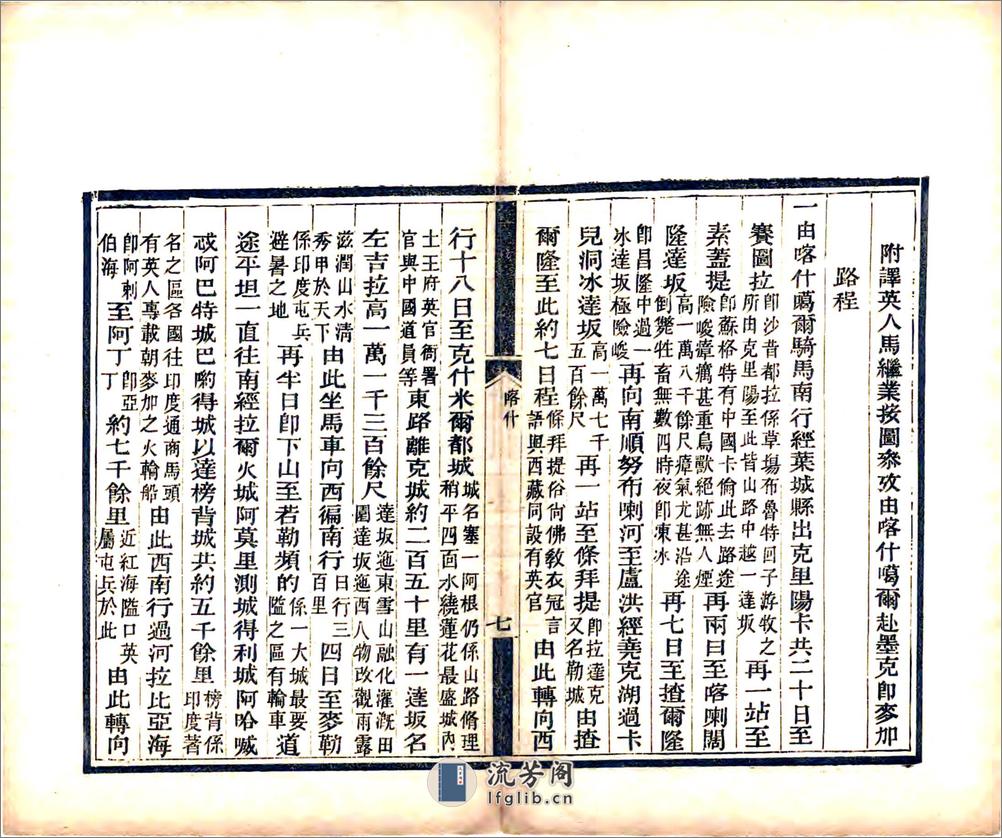 附譯英人馬繼業按圖叅攷由喀什噶爾赴墨克卽麥加
路程
一由喀什噶爾騎馬南行經葉城縣出克里陽卡共二十日至
賽圖拉卽沙昔都拉係草塲布魯特回子游牧之所由克里陽至此皆山路中越一達坂再一站至
素蓋提卽蘇格特有中國卡倫此去路途險峻瘴癘甚重鳥獸絕跡無人煙再兩日至喀喇闊
隆達坂高一萬八千餘尺瘴氣尤甚沿途倒斃牲畜無數四時夜卽凍冰再七日至揸爾隆
卽昌隆中過一冰達坂極險峻再向南順努布喇河至盧洪經堯克湖過卡
兒洞冰達坂高一萬七千五百餘尺再一站至條拜提卽拉達克又名勒城由揸
爾隆至此約七日程條拜提俗尙佛敎衣冠言語與西藏同設有英官由此轉向西
喀什
七
行十八日至克什米爾都城城名塞一阿根仍係山路脩理稍平四面水繞蓮花最盛城內
土王府英官衙署官與中國道員等東路離克城約二百五十里有一達坂名
左吉拉高一萬一千三百餘尺達坂迤東雪山融化灌漑田園達坂迤西人物改觀雨露
滋潤山水清秀甲於天下由此坐馬車向西偏南行日行三百里四日至麥勒
係印度屯兵避暑之地再半日卽下山至若勒頻的係一大城最要隘之區有輪車道
途平坦一直往南經拉爾火城阿莫里測城得利城阿哈喊
祓阿巴特城巴喲得城以達榜背城共約五千餘里榜背係印度著
名之區各國往印度通商馬頭有英人專載朝麥加之火輪船由此西南行過河拉比亞海
卽阿剌伯海至阿丁卽亞丁約七千餘里近紅海隘口英屬屯兵於此由此轉向
流芳阁
lfglib.cn